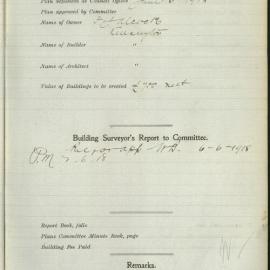 Plan deposited at Council Office
Plan approved by Committee "
Name of Owner
Kensington
Name of Builder "
Name of Architect "
Value of Buildings to be erected £700 nett
Building Surveyor's Report to Committee.
6-6-1918
P.M 7.6.18
Report Book, folio
Plans Committee Minute Book, page
Building Fee Paid
Remarks.